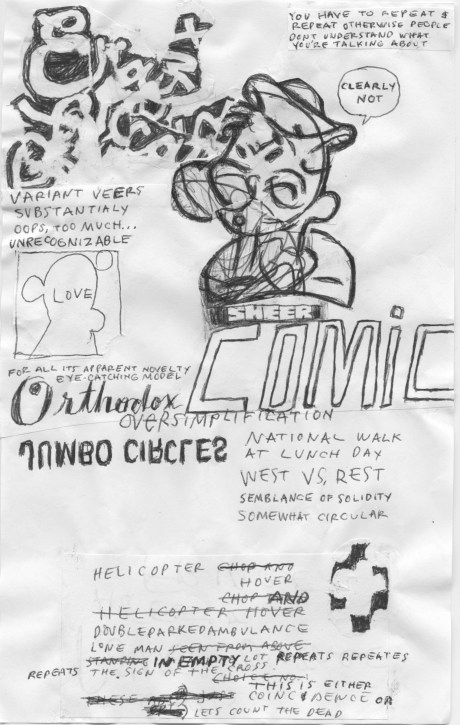 YOU HAVE TO REPEAT &
REPEAT OTHERWISE PEOPLE
DONT UNDERSTAND WHAT
YOU'RE TALKING ABOUT
CLEARLY
NOT
VARIANT VEERS
SUBSTANTIALY
OOPS, TOO MUCH...
UNRECOGNIZABLE
LOVE
SHEER
COMIC
FOR ALL ITS APPARENT NOVELTY
EYE-CATCHING MODEL
Orthodox
OVERSIMPLIFICATION
JUMBO CIRCLES
NATIONAL WALK
AT LUNCH DAY
WEST VS, REST
SEMBLANCE OF SOLIDITY
SOMEWHAT CIRCULAR
HELICOPTER CHOP AND
HOVER
CHOP AND
HELICOPTER HOVER
DOUBLEPARKEDAMBULANCE
LONE MAN SEEN FROM ABOVE
STANDING IN EMPTY LOT REPEATS REPEATES
REPEATS THE SIGN OF THE CROSS
CHOICE NO.
THIS IS EITHER
THESE COINCIDENCE OR
LETS COUNT THE DEAD